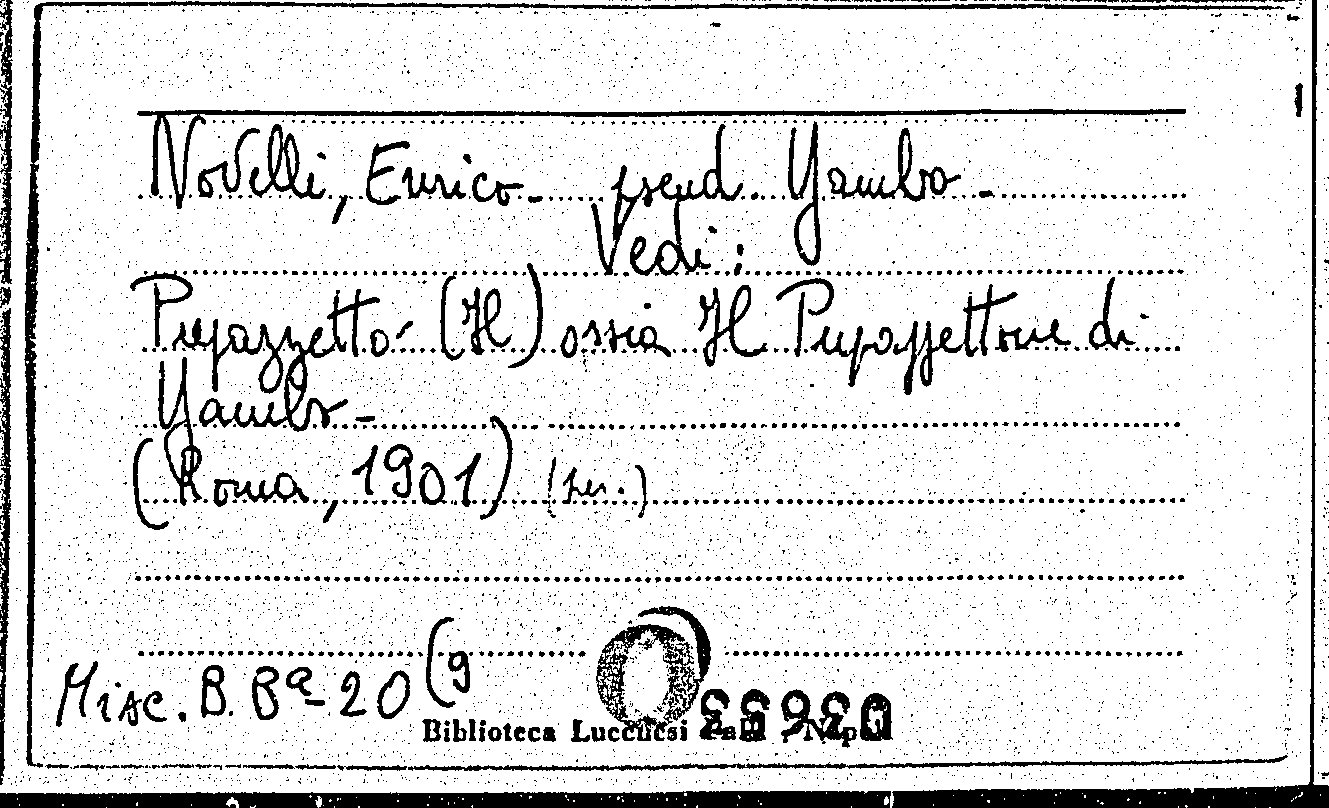 Novelli, Enrico - pseud. Yambo -
Vedi:
Pupazzetto (Il) ossia Il Pupazzettone di
Yambo -
(Roma, 1901) (Per.)
Misc. B. Bª - 20 (9
Biblioteca Lucchesi Palli - Napoli